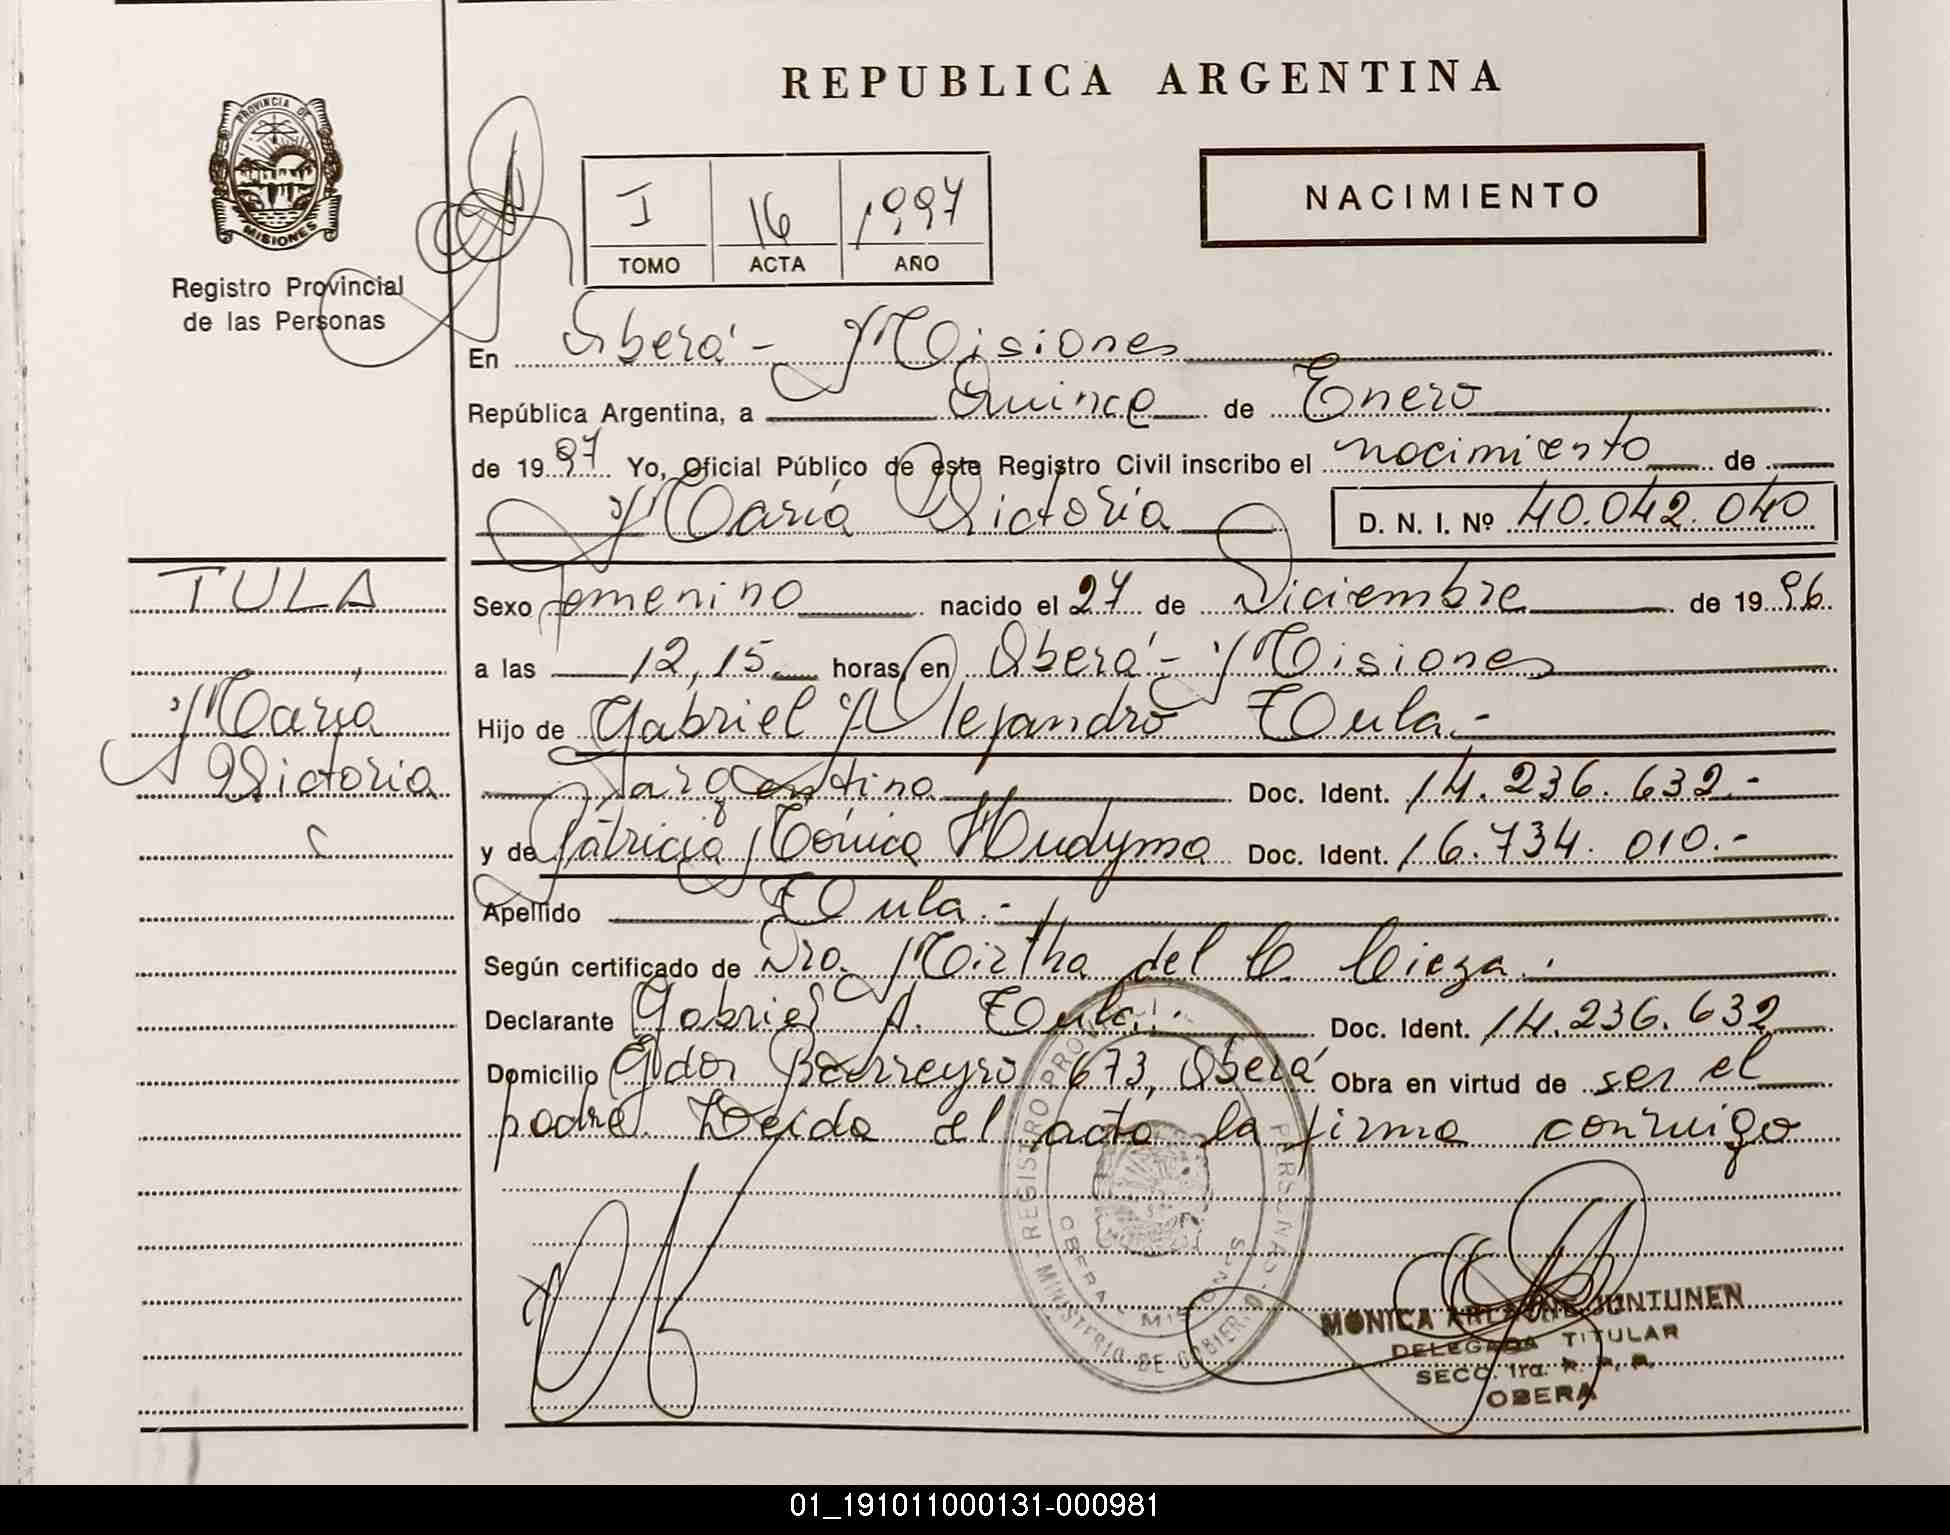 REPUBLICA ARGENTINA
PROVINCIA DE
MISIONES
Registro Provincial
de las Personas
I 16 1997
TOMO ACTA AÑO
NACIMIENTO
En Oberá - Misiones
República Argentina, a Quince de Enero
de 1997 Yo, Oficial Público de este Registro Civil inscribo el nacimiento de
María Victoria D. N. I. Nº 40.042.040
TULA
María
Victoria
Sexo femenino nacido el 27 de Diciembre de 1996
a las 12,15 horas, en Oberá - Misiones
Hijo de Gabriel Alejandro Tula.-
argentino Doc. Ident. 14.236.632.-
y de Patricia Mónica Hudyma Doc. Ident. 16.734.010.-
Apellido Tula.-
Según certificado de Dra. Mirtha del C. Cieza.
Declarante Gabriel A. Tula.. Doc. Ident. 14.236.632
Domicilio Gdor Barreyro 673, Oberá Obra en virtud de ser el
padre. Leida el acta la firma conmigo
REGISTRO PERSONAS
OBERA MISIONES
MINISTERIO DE GOBIERNO
MONICA JUNTUNEN
DELEGADA TITULAR
SECC. 1ra. R. P. P.
OBERA
01_191011000131-000981